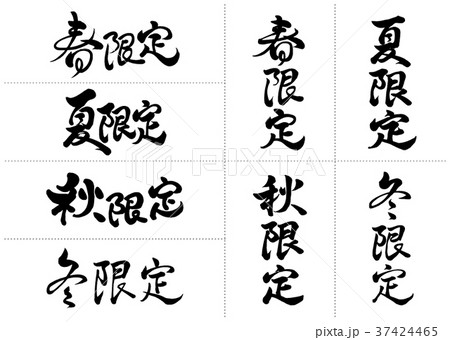 春限定
夏限定
秋限定
冬限定
春限定
夏限定
秋限定
冬限定
PIXTA
pixta.jp - 37424465